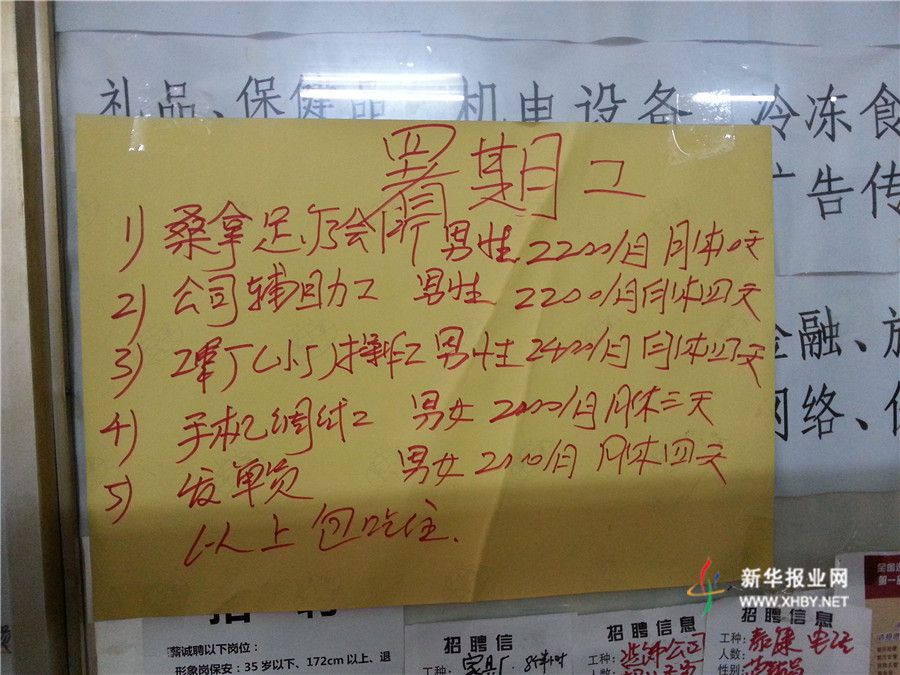 礼品、保健品 机电设备 冷冻食
广告传
暑期工
1) 桑拿足疗会所 男性 2200/月 月休四天
2) 公司辅助工 男性 2200/月 月休四天
3) 男性 2400/月 月休四天
4) 手机 男女 2000/月 月休三天
5) 发单员 男女 2100/月 月休四天
以上包吃住.
金融、旅
网络、
新华报业网
WWW.XHBY.NET
招聘
薪诚聘以下岗位：
形象岗保安：35岁以下、172cm以上、退
招聘信
工种： 家具厂
招聘信息
工种： 装饰公司
人数：
招聘信息
工种：
人数：
性别：
全国